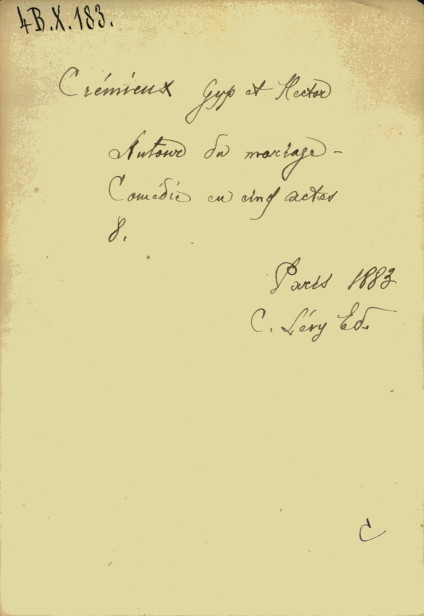 4B.X.183.
Crémieux Gyp et Hector
Autour du mariage -
Comédie en cinq actes
8.
Paris 1883
C. Lévy Ed.
C